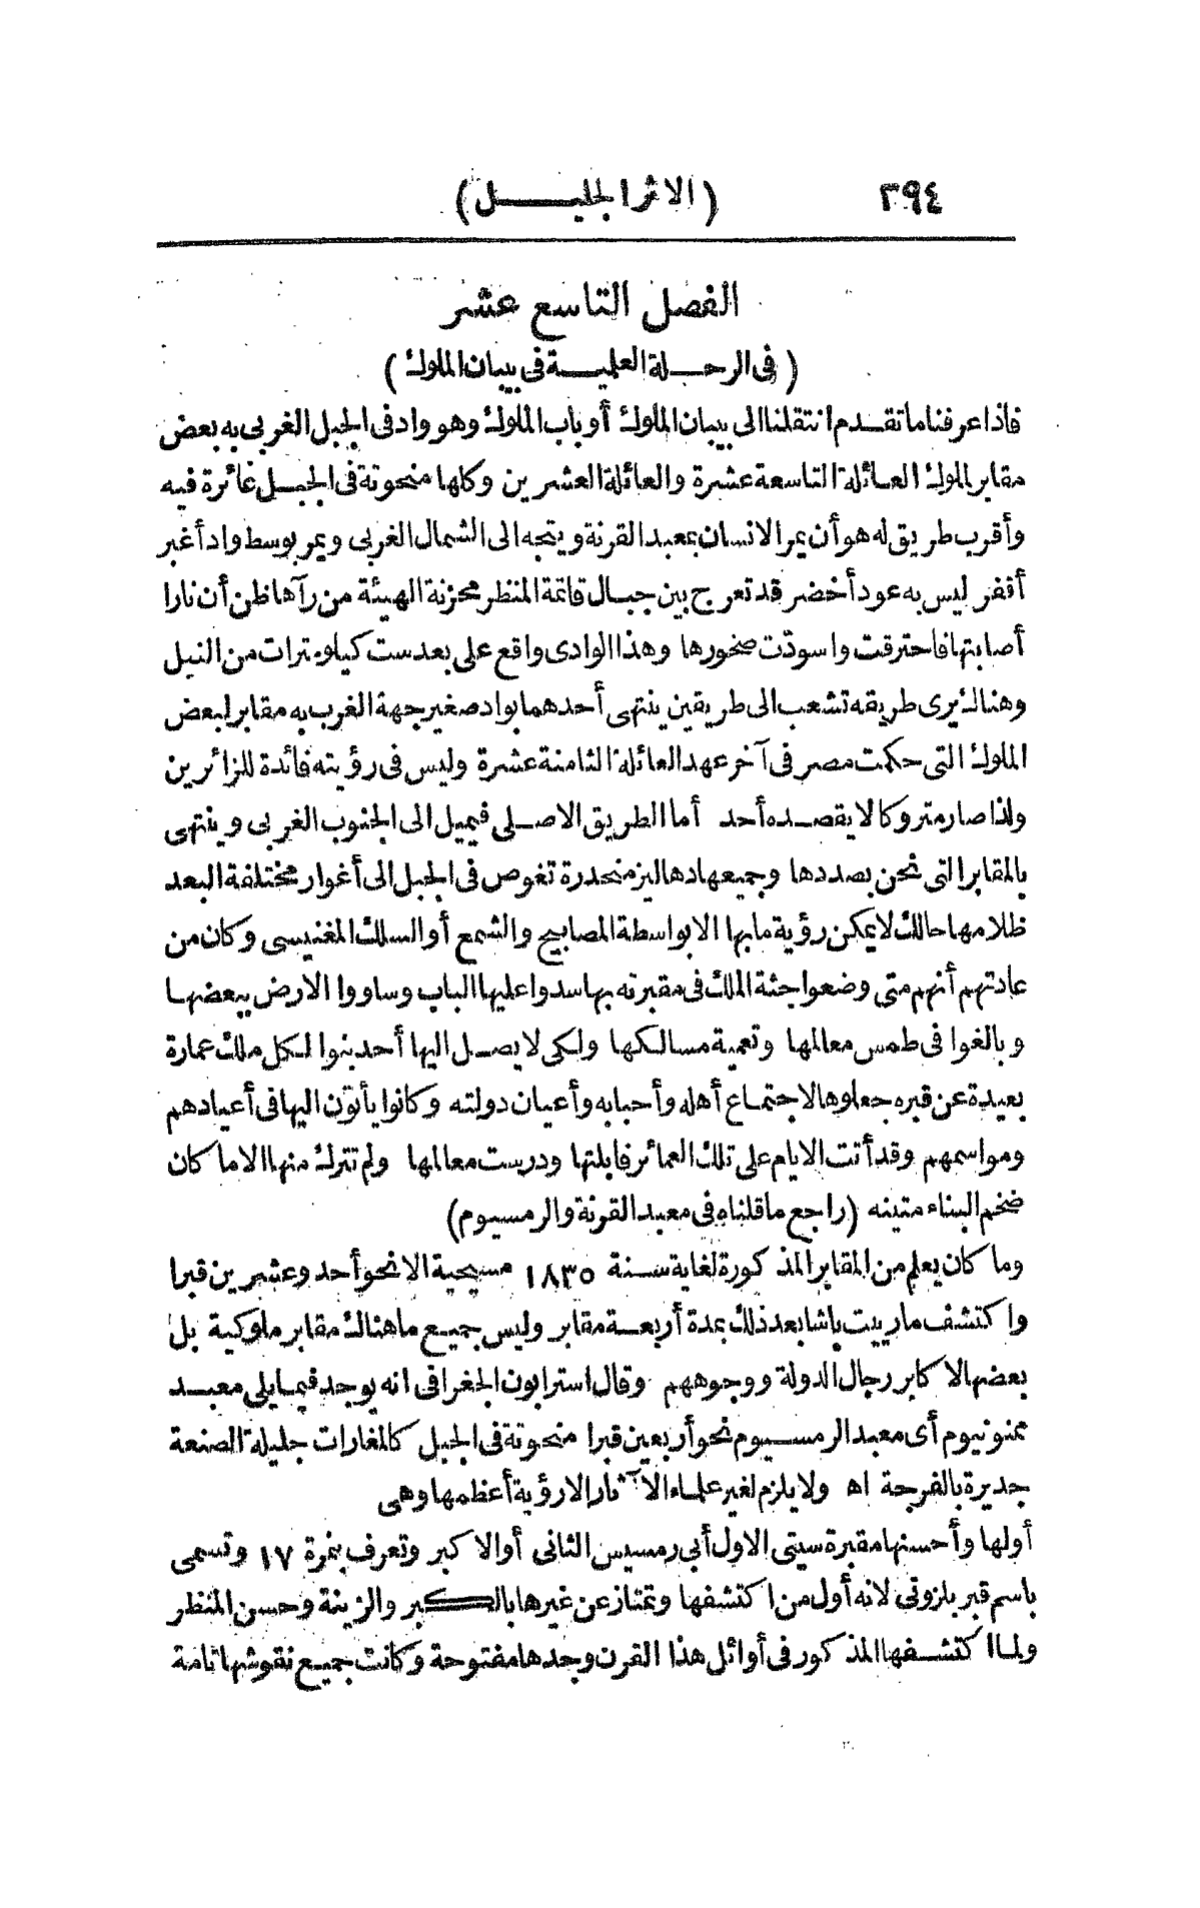 ٢٩٤ (الاثر الجليل)
الفصل التاسع عشر
(فى الرحلة العلمية فى بيبان الملوك)
فاذا عرفنا ما تقدم انتقلنا الى بيبان الملوك أو باب الملوك وهو واد فى الجبل الغربى به بعض
مقابر لملوك العائلة التاسعة عشرة والعائلة العشرين وكلها منحوتة فى الجبل غائرة فيه
وأقرب طريق له هو أن يمر الانسان بمعبد القرنة ويتجه الى الشمال الغربى ويمر بوسط واد أغبر
أقفر ليس به عود أخضر قد تعرج بين جبال قاتمة المنظر محزنة الهيئة من رآها ظن أن نارا
أصابتها فاحترقت واسودّت صخورها وهذا الوادى واقع على بعد ست كيلومترات من النيل
وهنالك يرى طريقه تشعب الى طريقين ينتهى أحدهما بواد صغير جهة الغرب به مقابر لبعض
الملوك التى حكمت مصر فى آخر عهد العائلة الثامنة عشرة وليس فى رؤيته فائدة للزائرين
ولذا صار متروكا لا يقصده أحد أما الطريق الاصلى فيميل الى الجنوب الغربى وينتهى
بالمقابر التى نحن بصددها وجميعها دهاليز منحدرة تغوص فى الجبل الى أغوار مختلفة البعد
ظلامها حالك لا يمكن رؤية ما بها الا بواسطة المصابيح والشمع أو السلك المغنيسى وكان من
عادتهم أنهم متى وضعوا جثة الملك فى مقبرته بها سدوا عليها الباب وساووا الارض ببعضها
وبالغوا فى طمس معالمها وتعمية مسالكها ولكى لا يصل اليها أحد بنوا لكل ملك عمارة
بعيدة عن قبره جعلوها لاجتماع أهله وأحبابه وأعيان دولته وكانوا يأتون اليها فى أعيادهم
ومواسمهم وقد أتت الايام على تلك العمائر فابلتها ودرست معالمها ولم تترك منها الا ما كان
ضخم البناء متينه (راجع ما قلناه فى معبد القرنة والرمسيوم)
وما كان يعلم من المقابر المذكورة لغاية سنة ١٨٣٥ مسيحية الا نحو أحد وعشرين قبرا
واكتشف مارييت باشا بعد ذلك بمدة أربعة مقابر وليس جميع ما هنالك مقابر ملوكية بل
بعضها لاكابر رجال الدولة ووجوههم وقال استرابون الجغرافى انه يوجد فيما يلى معبد
ممنونيوم أى معبد الرمسيوم نحو أربعين قبرا منحوتة فى الجبل كالمغارات جليلة الصنعة
جديرة بالفرجة اه ولا يلزم لغير علماء الآثار الا رؤية أعظمها وهى
أولها وأحسنها مقبرة سيتى الاول أبى رمسيس الثانى أو الاكبر وتعرف بنمرة ١٧ وتسمى
باسم قبر بلزونى لانه أول من اكتشفها وتمتاز عن غيرها بالكبر والزينة وحسن المنظر
ولما اكتشفها المذكور فى أوائل هذا القرن وجدها مفتوحة وكانت جميع نقوشها تامة